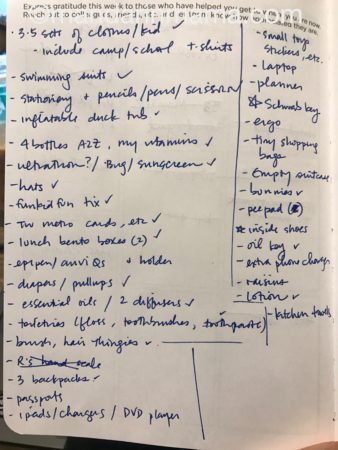 Express gratitude this week to those who have helped you get
3-5 sets of clothes/kid ✓
- include camp/school t shirts
- swimming suits ✓
- stationery + pencils/pens/scissors
- inflatable duck tub ✓
- 4 bottles A2Z, my vitamins ✓
- ultrathon?/Bug/sunscreen ✓
- hats ✓
- funkid fun tix ✓
- TW metro cards, etc ✓
- lunch bento boxes (2) ✓
- epipen/auvi Qs + holder
- diapers/pullups ✓
- essential oils / 2 diffusers ✓
- toiletries (floss, toothbrushes, toothpaste)
- brush, hair thingies ✓
- R's hand scale
- 3 backpacks ✓
- passports
- ipads/chargers / DVD player
- small toys
stickers, etc.
- laptop
- planner
☆ Schwab key
- ergo
- tiny shopping
bags
- Empty suitcase
- bunnies ✓
- pee pad
☆ inside shoes
- oil key ✓
- extra phone charger
- raisins
- lotion ✓
- kitchen towels